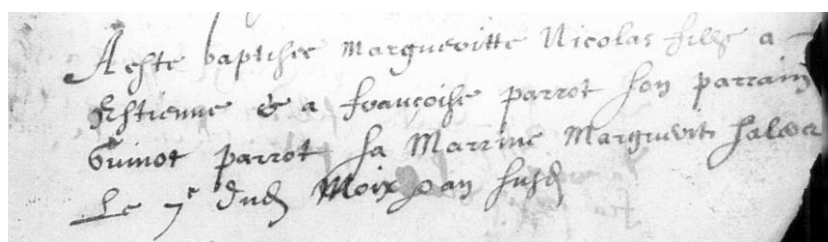 A este baptisee Margueritte Nicolas fille a
Estienne & a francoise parrot son parrain
Guinot parrot sa Marrine Marguerite
Le 7e dud Moix & an susd